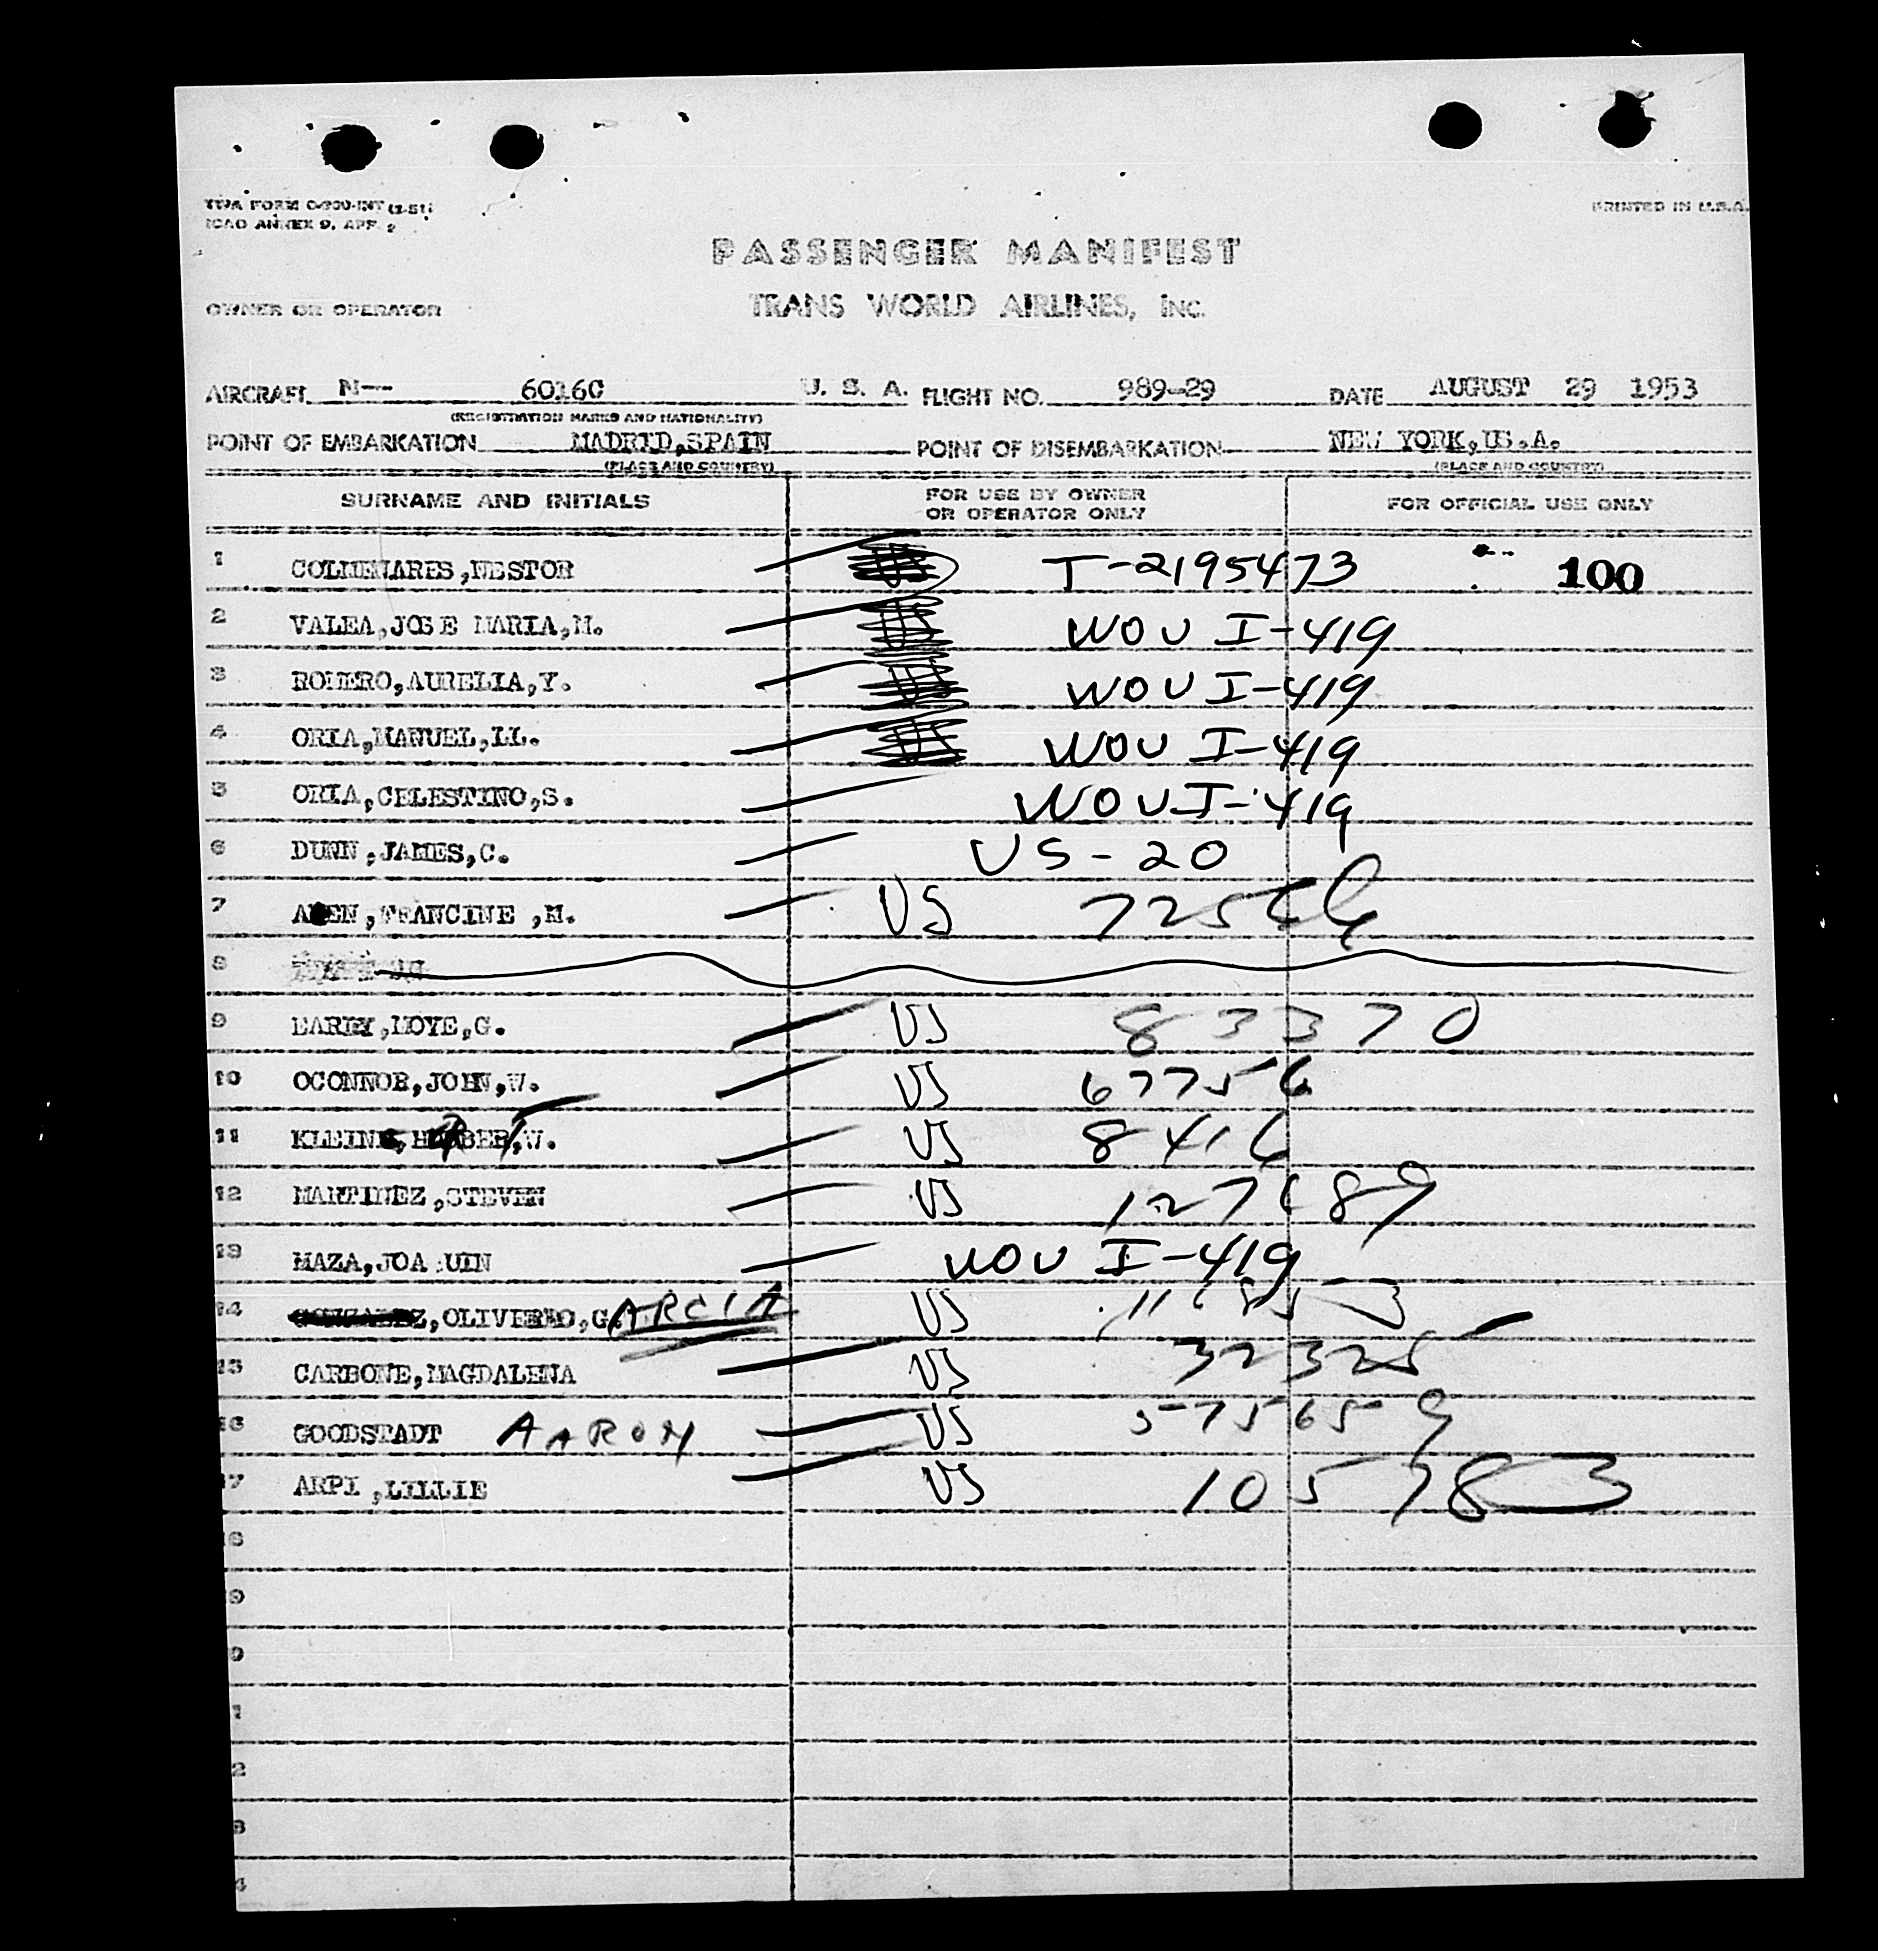 TWA FORM C-900-INT (2-51)
ICAO ANNEX 9, APP. 2
PRINTED IN U.S.A.
PASSENGER MANIFEST
OWNER OR OPERATOR TRANS WORLD AIRLINES, INC.
AIRCRAFT N-- 6016C U. S. A. FLIGHT NO. 989-29 DATE AUGUST 29 1953
(REGISTRATION MARKS AND NATIONALITY)
POINT OF EMBARKATION MADRID,SPAIN POINT OF DISEMBARKATION NEW YORK,US.A.
(PLACE AND COUNTRY) (PLACE AND COUNTRY)
SURNAME AND INITIALS FOR USE BY OWNER OR OPERATOR ONLY FOR OFFICIAL USE ONLY
1 COLMENARES,NESTOR US T-2195473 100
2 VALEA,JOSE MARIA,M. US WOV I-419
3 ROMERO,AURELIA,Y. US WOV I-419
4 ORIA,MANUEL,LL. US WOV I-419
5 ORIA,CELESTINO,S. WOV I-419
6 DUNN,JAMES,C. US-20
7 FRANCINE,M. US
8
9 MOYE,G. US 83370
10 OCONNOR,JOHN,W. US 67756
11 W. US 8416
12 MARTINEZ,STEVEN US 127689
13 MAZA,JOA UIN WOV I-419
14 GONZALEZ, G. ARCIA US
15 CARBONE,MAGDALENA US 32325
16 GOODSTADT AARON US 575659
17 ARPI,LILLIE US 105783
18
19
0
1
2
3
4